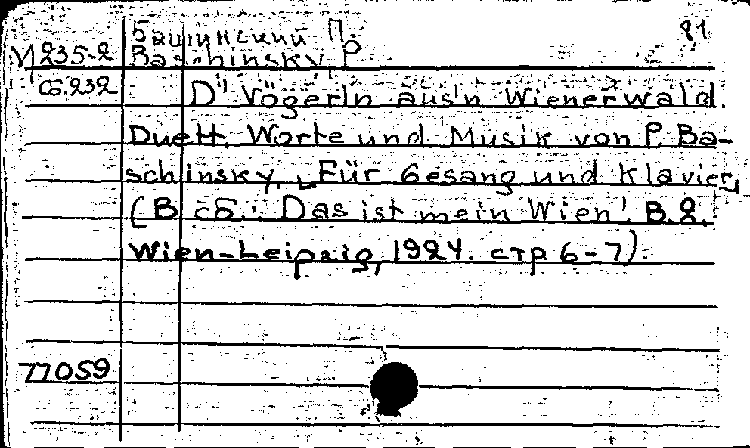 Башинский П. 81
М 235-2 Baschinsky P.
сб.232 D' Vögerln aus'n Wienerwald.
Duett. Worte und Musik von P. Ba-
schinsky. „Für Gesang und Klavier„
(В сб.: Das ist mein Wien! B.2.
Wien-Leipzig, 1924. стр 6-7).
77059